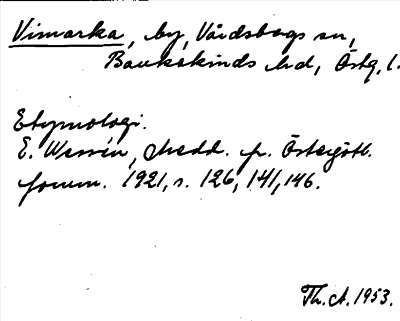 Vimarka, by, Vårdsbergs sn,
Bankekinds hd, Östg. l.
Etymologi.
E. Wessén, Medd. fr. Östergötl.
fornm. 1921, s. 126, 141, 146.
Th. A. 1953.